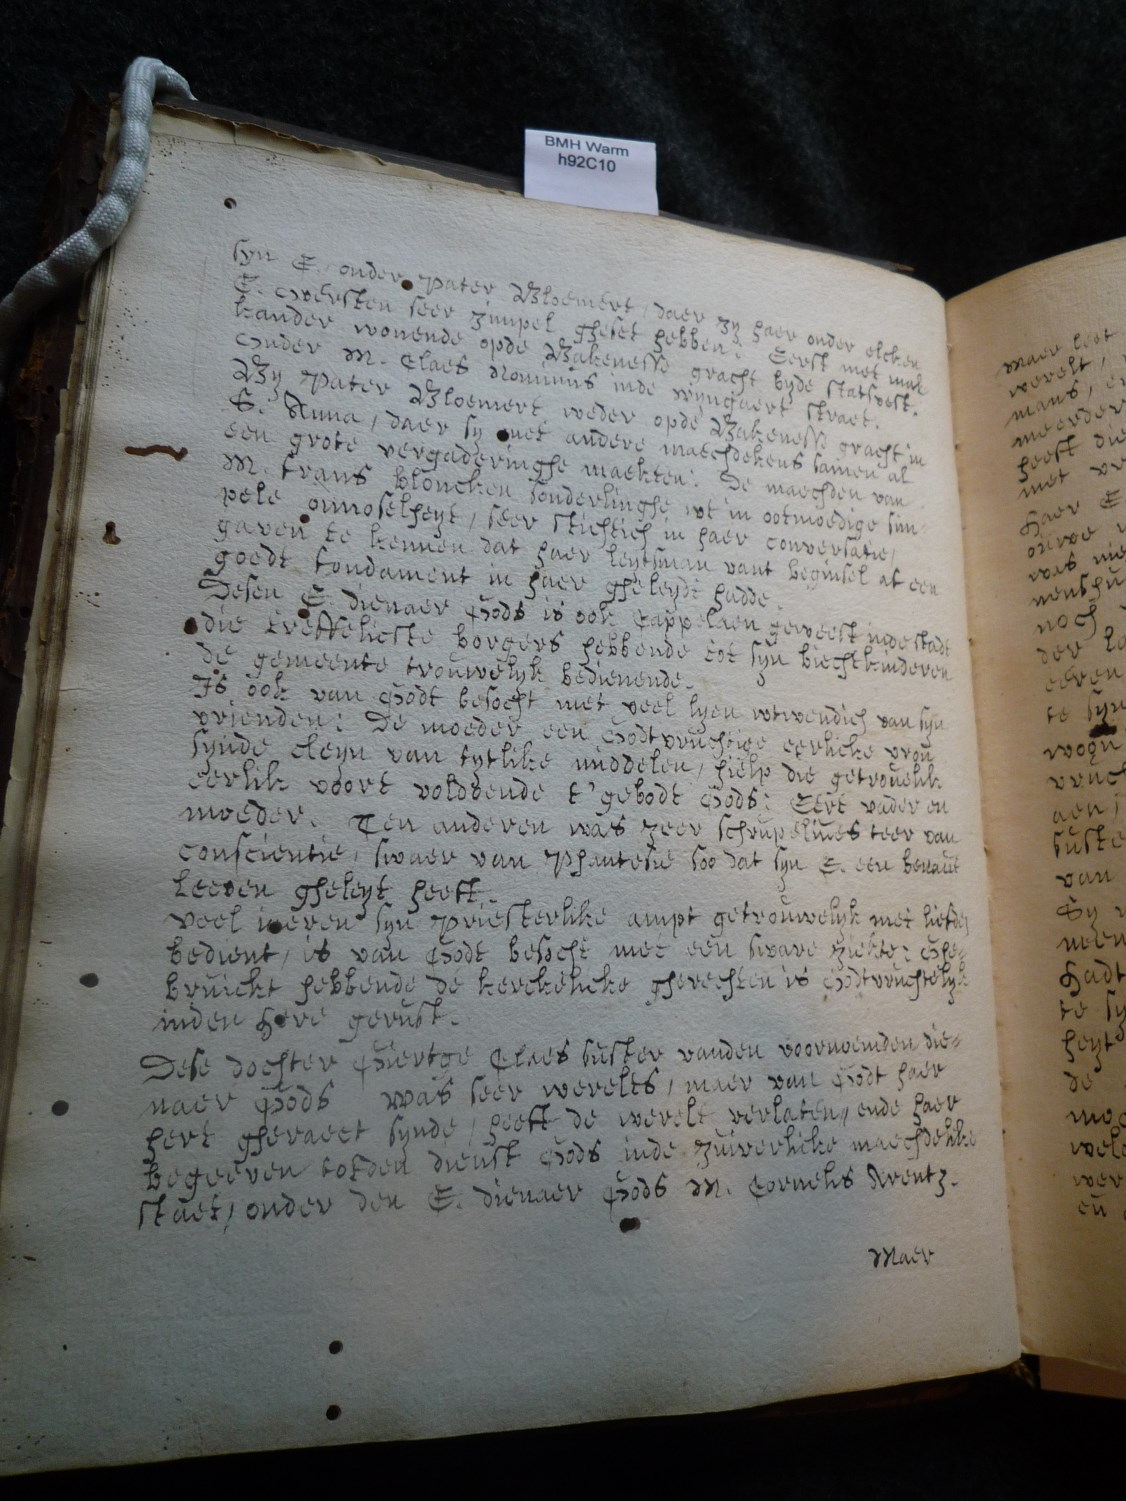 BMH Warm
h92C10
syn E. onder Pater Bloemert, daer zy haer onder elcken
E. Oversten seer simpel gheset hebben: Eerst met mal
kander wonende opde Bakenesse gracht byde statsvest.
Onder M. Claes Nomius inde wyngaert straet.
By Pater Bloemert weder opde Bakenesse gracht in
S. Anna, daer sy met andere maechdekens samen al
een grote vergaderinghe maekten: De maechden van
M. frans bloncken sonderlinghe wt in ootmoedige sim-
pele onnoselheyt, seer stichtich in haer conversatie,
gaven te kennen dat haer leytsman vant beginsel af een
goedt fondament in haer gheleydt hadde.
Desen E. dienaer Gods is ook Cappelaen geweest inde stadt
die treffelicste borgers hebbende tot syn biechtkinderen
de gemeente trouwelyk bedienende.
Is ook van Godt besocht met veel lyen wtwendich van syn
vrienden: De moeder een Godtvruchtige eerlicke vrou
synde cleyn van tytlike middelen, hielp die getrouwelik
eerlik voort voldoende t'gebodt Gods: Eert vader en
moeder. Ten anderen was zeer schrupelues teer van
conscientie, swaer van Phantesie soo dat syn E. een benaut
leeven gheleyt heeft.
Veel iaeren syn Priesterlike ampt getrouwelyk met liefde
bedient, is van Godt besocht met een sware ziekte: Ghe-
bruickt hebbende de kerckelicke gherechten is Godtvruchtelyk
inden Here gerust.
Dese dochter Giertge Claes suster vanden voornoemden die-
naer Gods was seer werelts, maer van Godt haer
hert gheraect synde, heeft de werelt verlaten, ende haer
begeeven totden dienst Gods inde zuiverlicke maechdelike
staet, onder den E. dienaer Gods M. Cornelis Arentz.
Maer
maer leot
werelt,
mans, e
meerder
heeft die
met vr
haer E
ouwe
was nie
menschu
noch
der la
eeren
te syn
woon
vruch
aen
suste
van
Sy
neen
hadt
te sy
heyt
de
moe
wel
wer
en